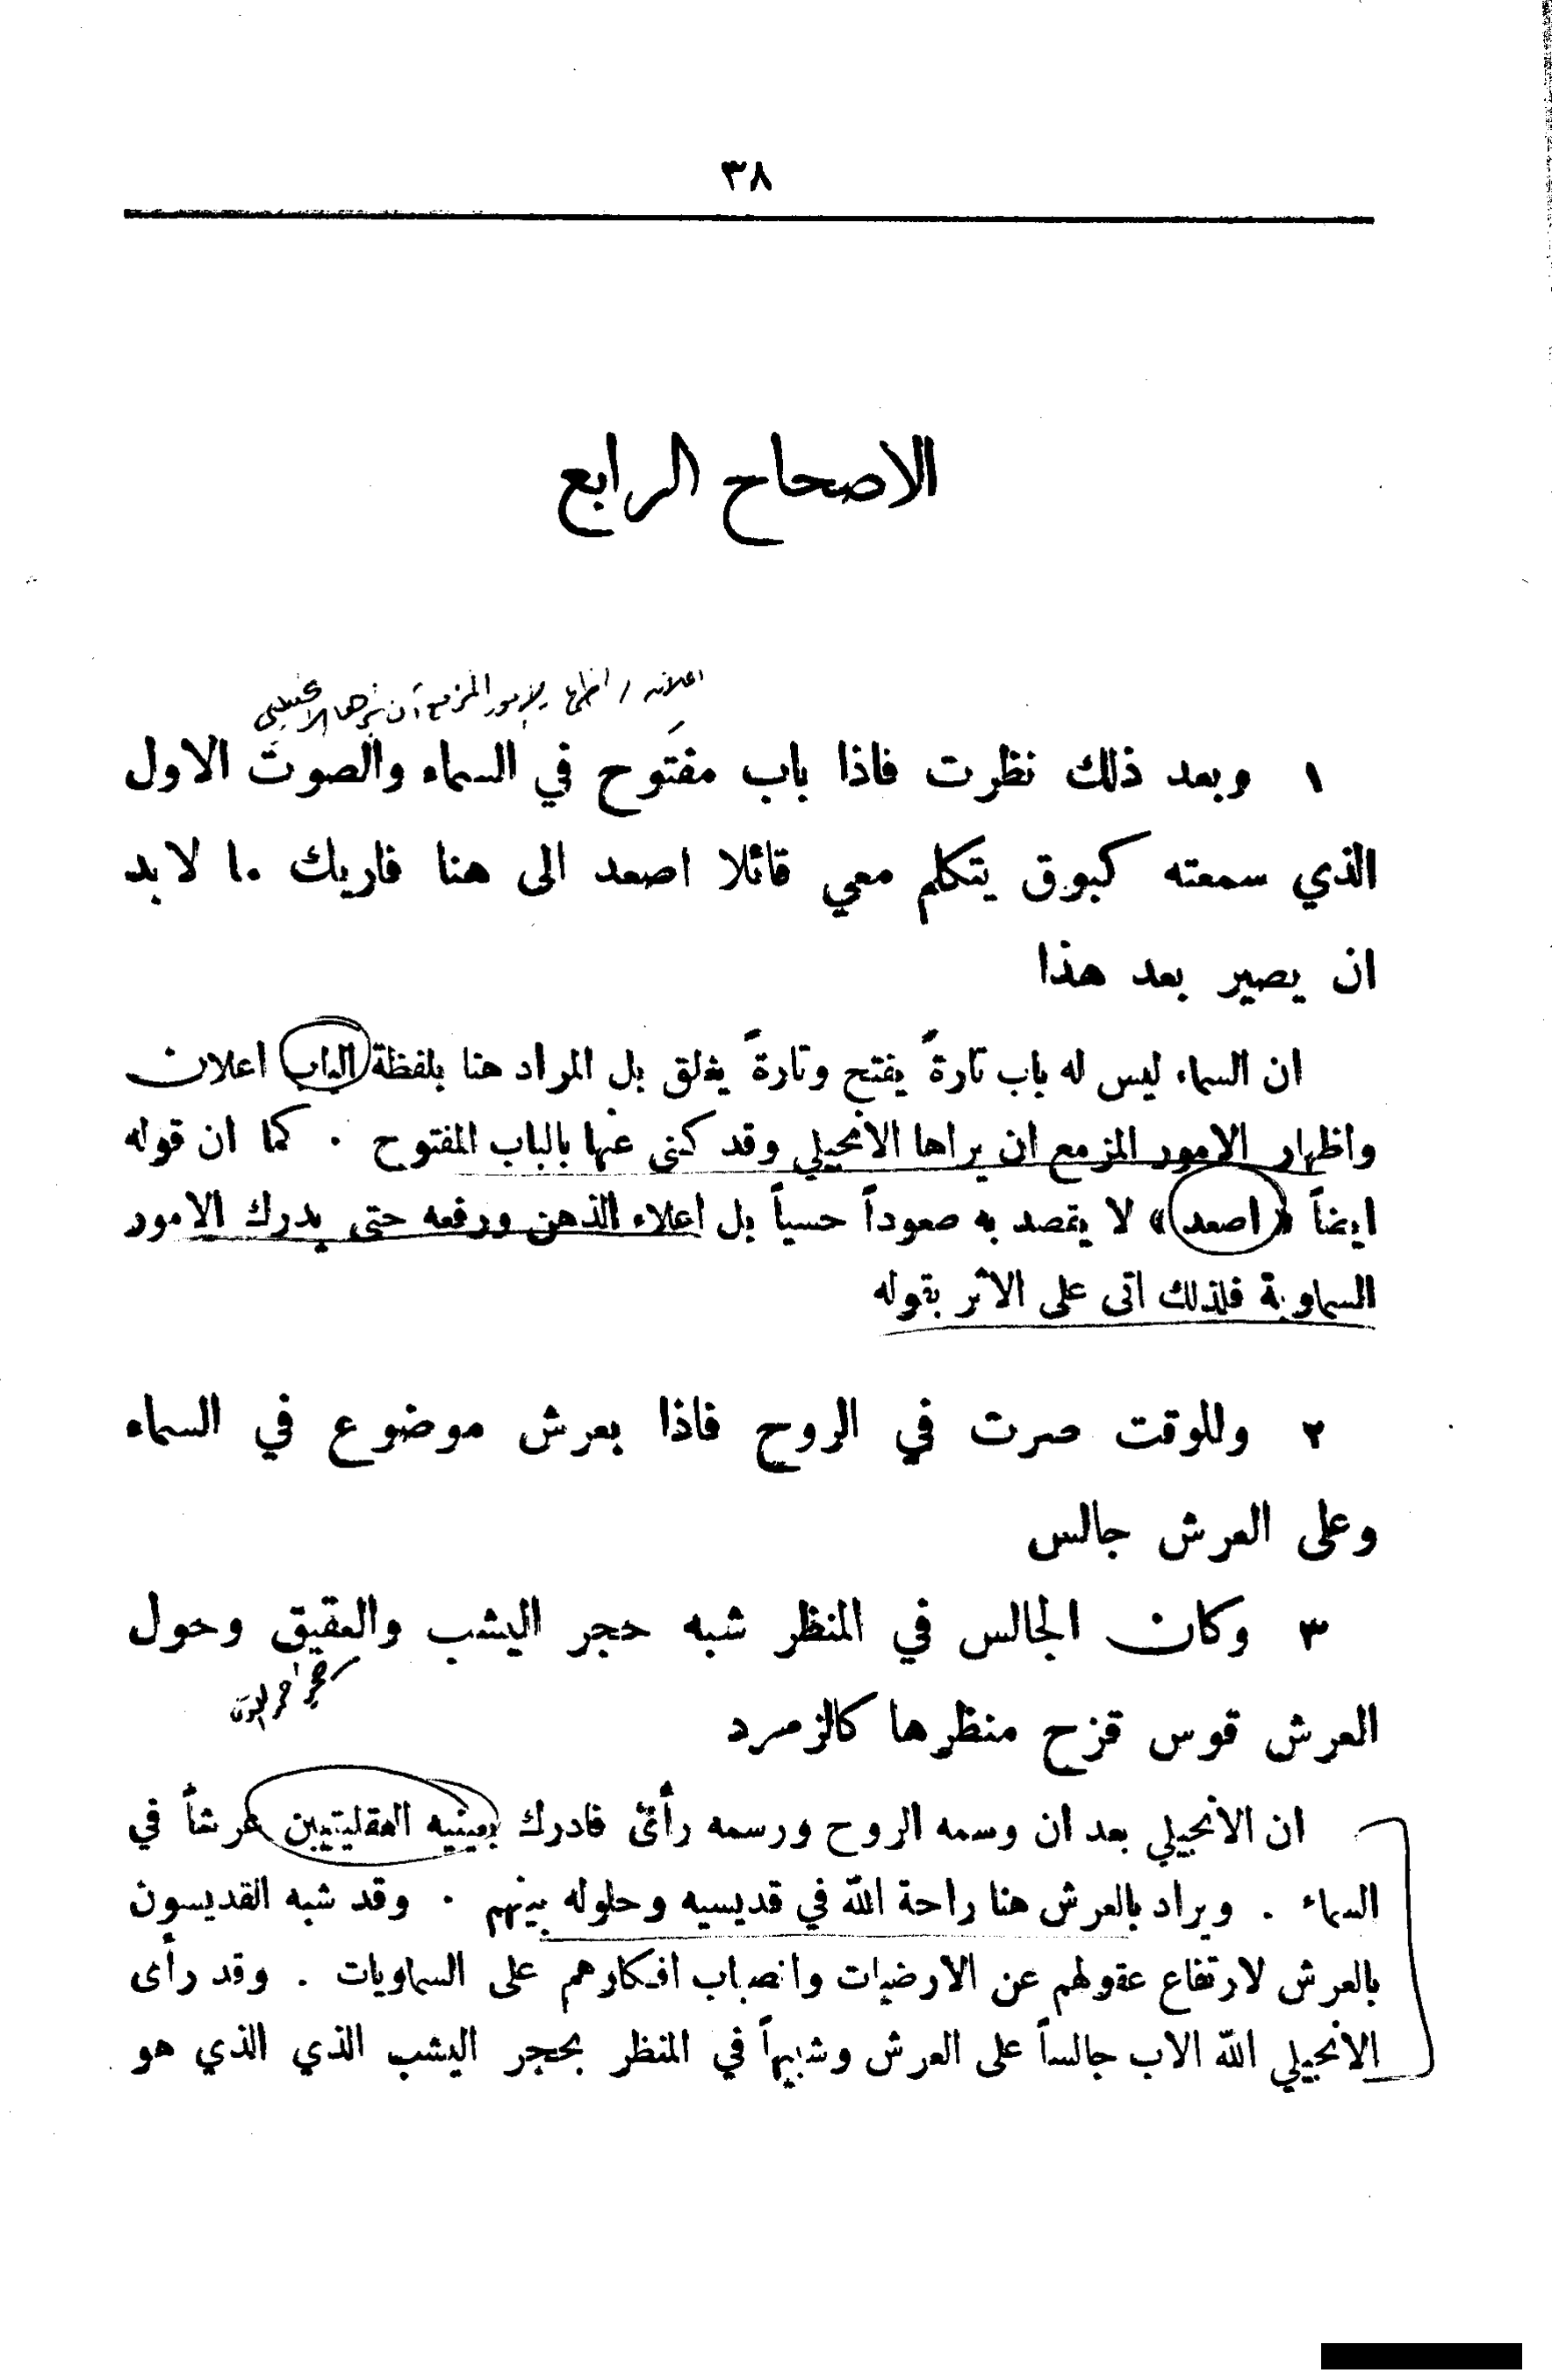 ٣٨
الاصحاح الرابع
اعلان / اظهار الامور المزمع ان يراها الانجيلي
١ وبعد ذلك نظرت فاذا باب مفتوح في السماء والصوت الاول
الذي سمعته كبوق يتكلم معي قائلا اصعد الى هنا فاريك ما لا بد
ان يصير بعد هذا
ان السماء ليس له باب تارةً يفتح وتارةً يغلق بل المراد هنا بلفظة الباب اعلان
واظهار الامور المزمع ان يراها الانجيلي وقد كنى عنها بالباب المفتوح . كما ان قوله
ايضاً «اصعد» لا يقصد به صعوداً حسياً بل اعلاء الذهن ورفعه حتى يدرك الامور
السماوية فلذلك اتى على الاثر بقوله
٢ وللوقت صرت في الروح فاذا بعرش موضوع في السماء
وعلى العرش جالس
٣ وكان الجالس في المنظر شبه حجر اليشب والعقيق وحول
حجر احمر اللون
العرش قوس قزح منظرها كالزمرد
ان الانجيلي بعد ان وسمه الروح ورسمه رأى فادرك بعينيه العقليتين عرشاً في
السماء . ويراد بالعرش هنا راحة الله في قديسيه وحلوله بينهم . وقد شبه القديسون
بالعرش لارتفاع عقولهم عن الارضيات وانصباب افكارهم على السماويات . وقد رأى
الانجيلي الله الاب جالساً على العرش وشبيهاً في المنظر بحجر اليشب الذي الذي هو